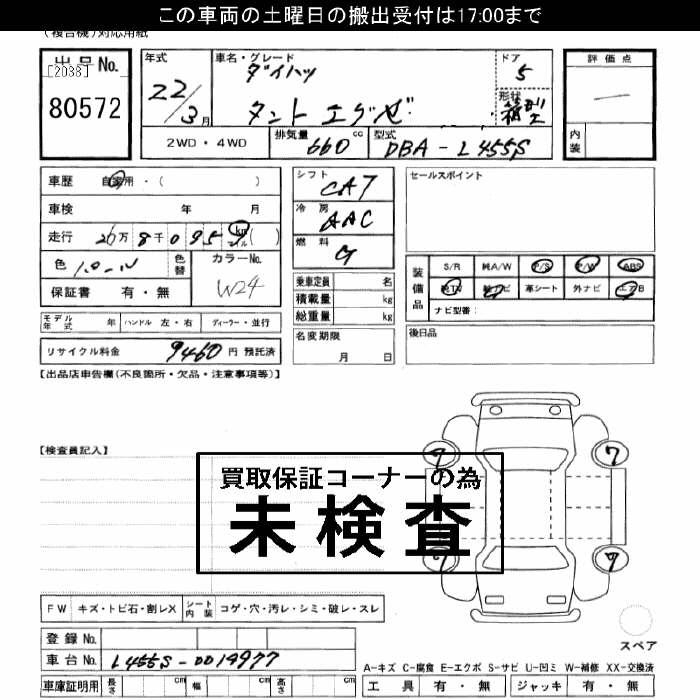 この車両の土曜日の搬出受付は17:00まで
(複合機)対応用紙
出品No. [2038] 80572
年式 22/3月
車名・グレード ダイハツ タント エグゼ
ドア 5
形状 箱型
評価点 —
内装
2WD・4WD
排気量 660 cc
型式 DBA-L455S
車歴 自家用・( )
車検 年 月
走行 26万8千0959 km マイル ( )
色 パール 色替
カラーNo. W24
保証書 有・無
モデル年式 年 ハンドル 左・右 ディーラー・並行
リサイクル料金 9460 円 預託済
シフト CAT
冷房 AAC
燃料 G
乗車定員 名
積載量 kg
総重量 kg
名変期限 月 日
セールスポイント
装備品
S/R 純A/W P/S P/W ABS
純TV 純ナビ 革シート 外ナビ エアB
ナビ型番:
後日品
【出品店申告欄(不良箇所・欠品・注意事項等)】
【検査員記入】
買取保証コーナーの為
未検査
7 7
7 7
FW キズ・トビ石・割レX シート内装 コゲ・穴・汚レ・シミ・破レ・スレ
登録No.
車台No. L455S-0014977
車庫証明用 長さ cm 幅 cm 高さ cm
スペア
A-キズ C-腐食 E-エクボ S-サビ U-凹ミ W-補修 XX-交換済
工具 有・無 ジャッキ 有・無